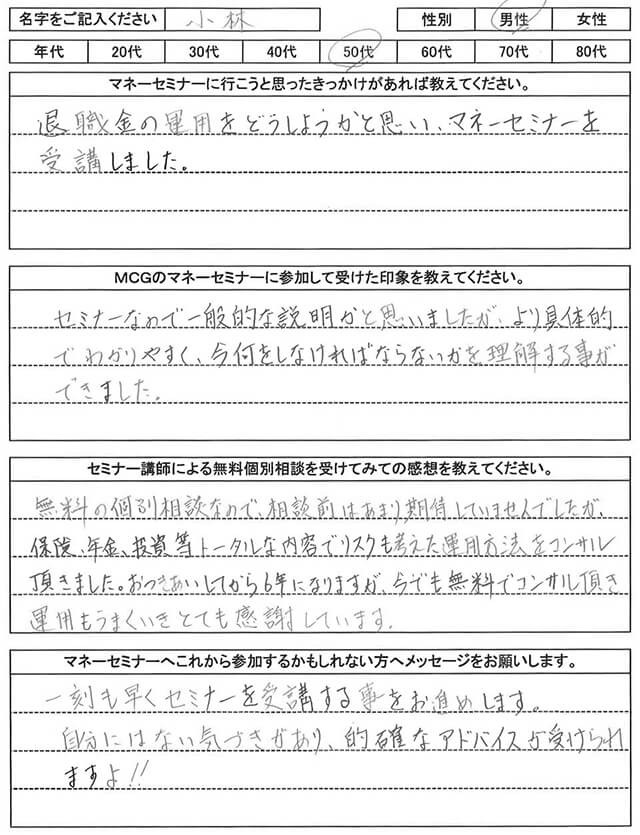 名字をご記入ください 小林 性別 男性 女性
年代 20代 30代 40代 50代 60代 70代 80代
マネーセミナーに行こうと思ったきっかけがあれば教えてください。
退職金の運用をどうしようかと思い、マネーセミナーを
受講しました。
MCGのマネーセミナーに参加して受けた印象を教えてください。
セミナーなので一般的な説明かと思いましたが、より具体的
でわかりやすく、今何をしなければならないかを理解する事が
できました。
セミナー講師による無料個別相談を受けてみての感想を教えてください。
無料の個別相談なので、相談前はあまり期待していませんでしたが、
保険、年金、投資等トータルな内容でリスクも考えた運用方法をコンサル
頂きました。おつきあいしてから6年になりますが、今でも無料でコンサル頂き
運用もうまくいきとても感謝しています。
マネーセミナーへこれから参加するかもしれない方へメッセージをお願いします。
一刻も早くセミナーを受講する事をお進めします。
自分にはない気づきがあり、的確なアドバイスが受けられ
ますよ!!